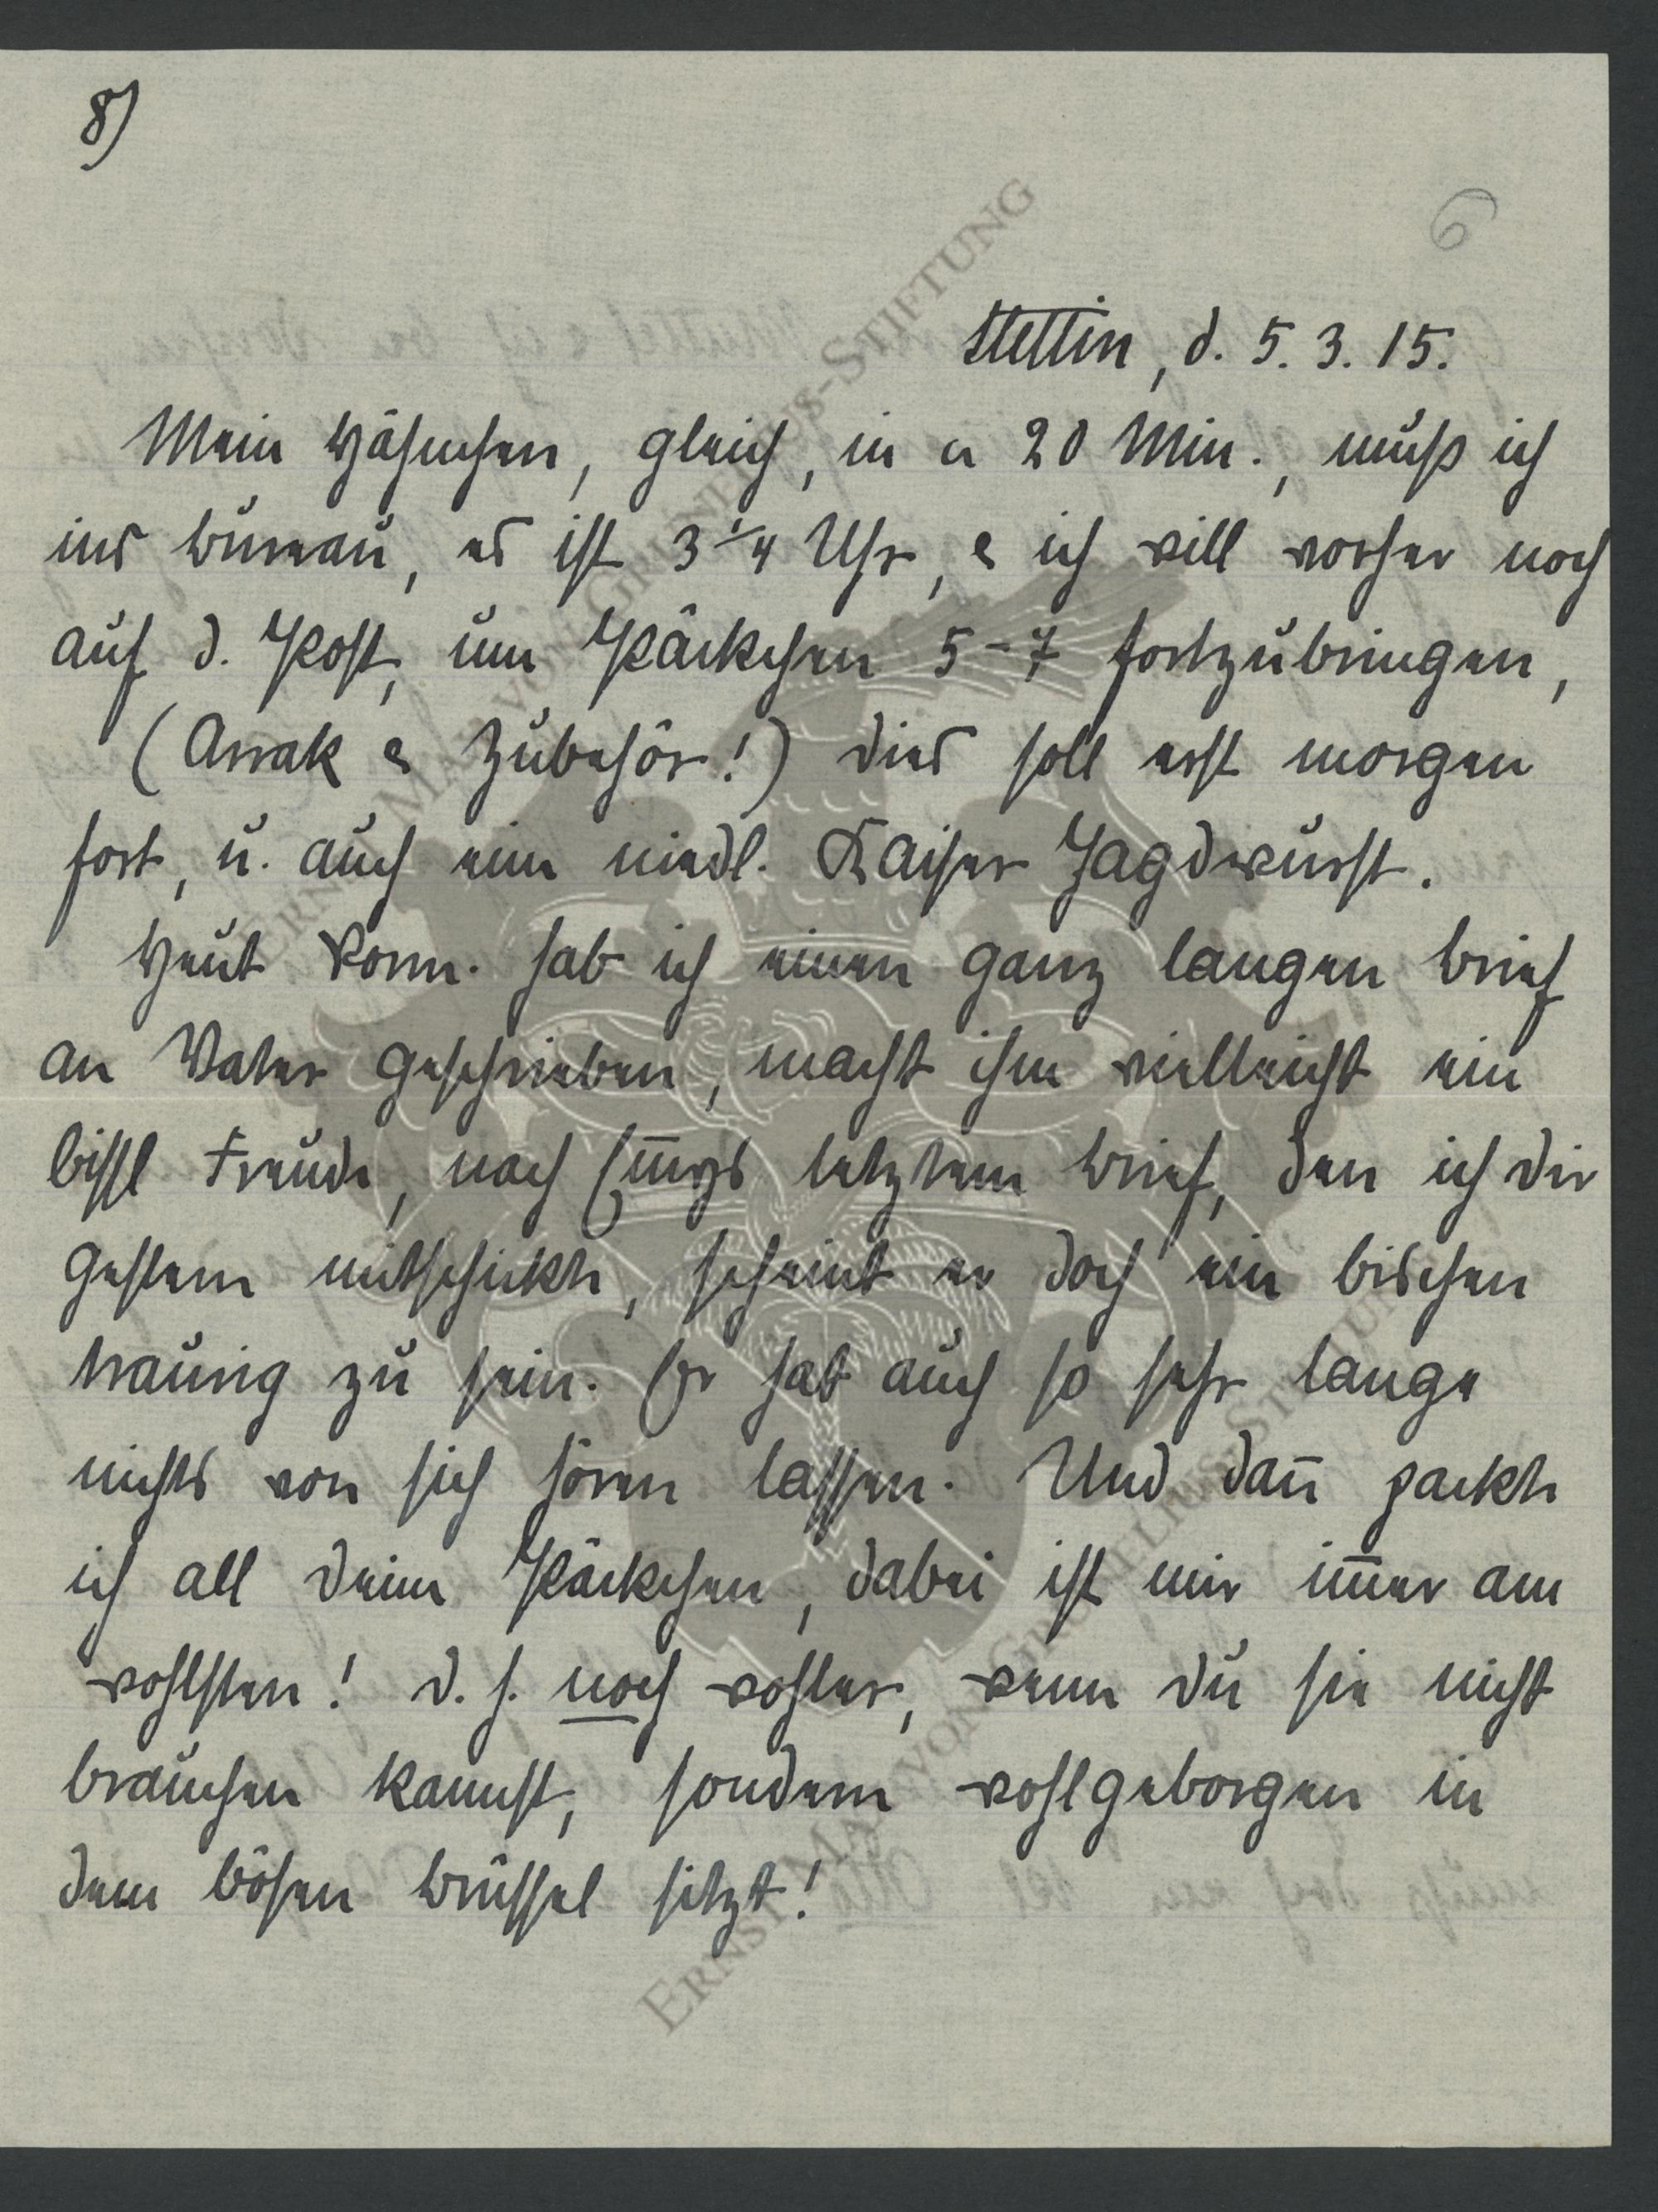 8)
6
Stettin, d. 5. 3. 15.
Mein Häschen, gleich, in a 20 Min., muß ich
ins Bureau, es ist 3 1/4 Uhr, & ich will vorher noch
auf d. Post, um Päckchen 5-7 fortzubringen,
(Arrak & Zubehör!) dies soll erst morgen
fort, u. auch eine niedl. Kaiser Jagdwurst.
Heut Vorm. hab ich einen ganz langen Brief
an Vater geschrieben, macht ihm vielleicht ein
bissl Freude, nach letztem Brief, den ich dir
gestern mitschickte, scheint er doch ein bischen
traurig zu sein. Er hat auch so sehr lange
nichts von sich hören lassen. Und dan̅ packte
ich all deine Päckchen, dabei ist mir im̅er am
wohlsten! d. h. noch wohler, wenn du sie nicht
brauchen kannst, sondern wohlgeborgen in
dem bösen Brüssel sitzt!
ERNST MARIA VON GRUNELIUS-STIFTUNG
ERNST MARIA VON GRUNELIUS-STIFTUNG